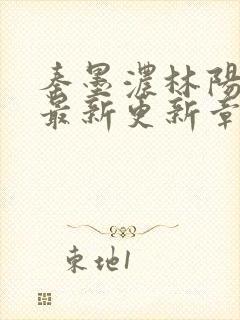 秦墨濃林陽
最新更新章
東地1